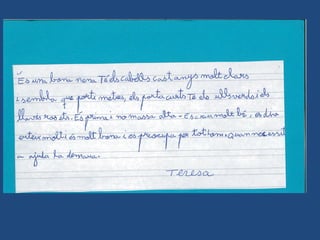 És una bona nena Té els cabells castanys molt clars
i sembla que porti metxes, els porta curts Té els ulls verds i els
llavis rosets. És prima i no massa alta. És
molt i és molt bona i es procupa per tothom. Quan necessit
a ajuda la demana.
Teresa